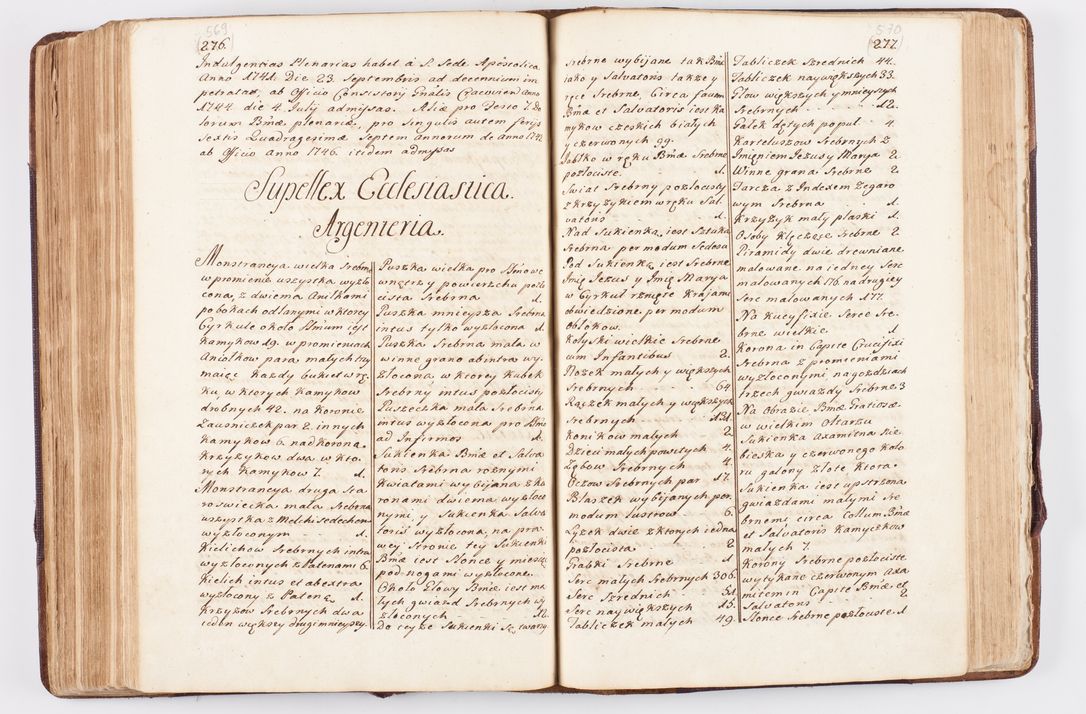 569
276.
Indulgentias Plenarias habet à S. Sede Apostolica
Anno 1741. Die 23. Septembris ad decennium im
petratas, ab Officio Consistory Gnalis Cracovien Anno
1744 die 4. July admissas. Alia pro Festo 7. Do
lorum Bmæ plenariæ, pro singulis autem ferijs
sextis Quadragesimæ Septem annorum de anno 1742
ab Officio Anno 1746. itidem admissas
Supellex Ecclesiastica.
Argenteria.
Monstrancya wielka Srebrna
w promienie wszystka wyzło
cona, z dwiema Aniołkami
po bokach odlanymi w ktorey
Cyrkule około Smum iest
Kamykow 19. w promieniach
Aniołkow para małych trzy
maiąc kozdy bukiet w rę
ku, w ktorych Kamykow
drobnych 42. na Koronie
Zausniczek par 2. innych
Kamykow 6. nad Koroną
Krzyzykow dwa w kto
rych Kamykow 7. 1.
Monstrancya druga sta
roswiecka mała Srebrna
wszystka z Melchisedechem
wyzłoconym 1.
Kielichow Srebrnych intra
wyzłoconych z Patenami 6.
Kielich intus et abextra
wyzłocony z Pateną 1.
Krzyzow Srebrnych dwa
ieden większy drugi mnieyszy
Puszka wielka pro Smowe
wnętrzy powierzchu pozło
cista Srebrna 1.
Puszka mnieysza Srebrna
intus tylko wyzłocona 1.
Puszka Srebrna mała w
winne grono abintra wy
złocona w ktorey Kubek
Srebrny intus pozłocisty
Puszeczka mała Srebrna
intus wyzłocona pro Smo
ad Infirmos 1.
Sukienka Bmæ et Salva
toris Srebrna roznymi
Kwiatami wybijana z ko
ronami dwiema wyzłoco
nymi, y Sukienka Salva
toris wyzłocona, na pra
wey stronie tey Sukienki
Bmæ iest Słonce y miesiąc
pod nogami wyzłocone.
Około Głowy Bmæ iest ma
łych gwiazd Srebrnych wy
złoconych 12.
Do teyze Sukienki są twarzy
570
277.
srebrne wybijane tak Bmæ
iako y Salvatoris takze y
ręce Srebrne. Circa faciem
Bmæ et Salvatoris iest Ka
mykow czeskich białych
y czerwonych 99.
Jabłko w ręku Bmæ Srebrne
pozłociste. 1.
Swiat Srebrny pozłocisty
z krzyzykiem w ręku Sal
vatoris 1.
Nad Sukienką iest Sztuka
Srebrna per modum Sedesu
Pod Sukienką iest Srebrne
Imię Jezus y Imię Marya
w Cyrkuł rznięte Krajami
obwiedzione per modum
obłokow.
Kolyski wielkie Srebrne
cum Infantibus 2.
Nozek małych y większych
Srebrnych 64
Rączek małych y większych
Srebrnych 131
Konikow małych 2.
Dzieci małych powitych 4.
Zębow Srebrnych 4.
Oczow Srebrnych par 17.
Blaszek wybijanych per
modum lustrow 6.
Łyzek dwie z ktorych iedna
pozłocista 2.
Grabki Srebrne 1.
Serc małych Srebrnych 306.
Serc Srednich 51.
Serc naywiększych 15.
Tabliczek małych 49.
Tabliczek Srednich 44.
Tabliczek naywiększych 33.
Głow większych y mnieyszych
Srebrnych 12.
Gałek dętych popul 4.
Karteluszow Srebrnych z
Imieniem Jezus y Marya 2.
Winne grona Srebrne 2.
Tarcza z Indexem Zegaro
wym Srebrna 1.
Krzyzyk mały płaski 1.
Osoby klęczące Srebrne 2.
Piramidy dwie drewniane
malowane na iedney Serc
malowanych 176. na drugiey
Serc malowanych 177.
Na Krucyfixie Serce Sre
brne wielkie 1.
Korona in Capite Crucifixi
Srebrna z promieniami
wyzłoconymi na gozdziach
trzech gwiazdy Srebrne 3
Na Obrazie Bmæ Gratiosæ
w wielkim Ołtarzu
Sukienka Axamitna nie
bieska y czerwonego kolo
ru galony Złote ktora
Sukienka iest upstrzona
gwiazdami małymi Sre
brnemi circa Collum Bmæ
et Salvatoris Kamyczkow
małych 7.
Korony Srebrne pozłociste
wytykane czerwonym Axa
mitem in Capite Bmæ et
Salvatoris 2.
Słonce Srebrne pozłociste 1